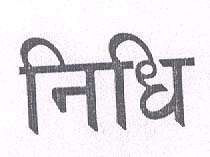 निधि